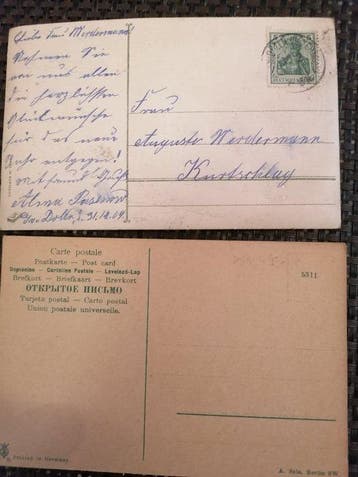 Liebe Frau Werdermann!
Nehmen Sie
von uns allen
die herzlichsten
Glückwünsche
für das neue
Jahr entgegen!
Mit freundl. Gruß
Alma
31.12.09.
Frau
Auguste Werdermann
Kurtschlag
Carte postale
Postkarte — Post card
Dopisnice — Cartolina Postale — Levelező-Lap
Brefkort — Briefkaart — Brevkort
ОТКРЫТОЕ ПИСЬМО
Tarjeta postal — Carto postal
Union postale universelle.
5311
Printed in Germany
Berlin SW.